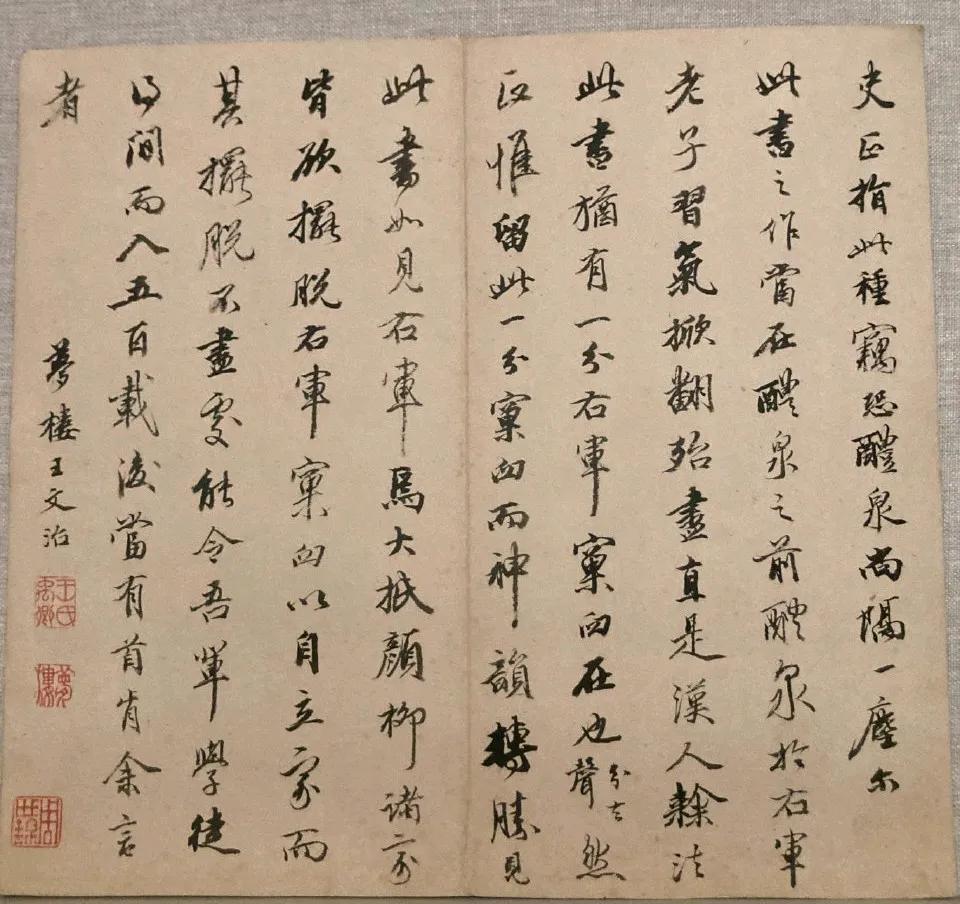 史正指此種竊恐醴泉尚隔一塵尓
此書之作當在醴泉之前醴泉於右軍
老子習氣掀翻殆盡直是漢人隸法
此書猶有一分右軍窠臼在也分去聲然
正惟留此一分窠臼而神韻轉勝見
此書如見右軍焉大抵顏柳諸家
皆欲擺脫右軍窠臼以自立家而
其擺脫不盡處能令吾輩學徒
得間而入五百載後當有首肯余言
者
夢樓王文治
王氏禹卿
夢樓